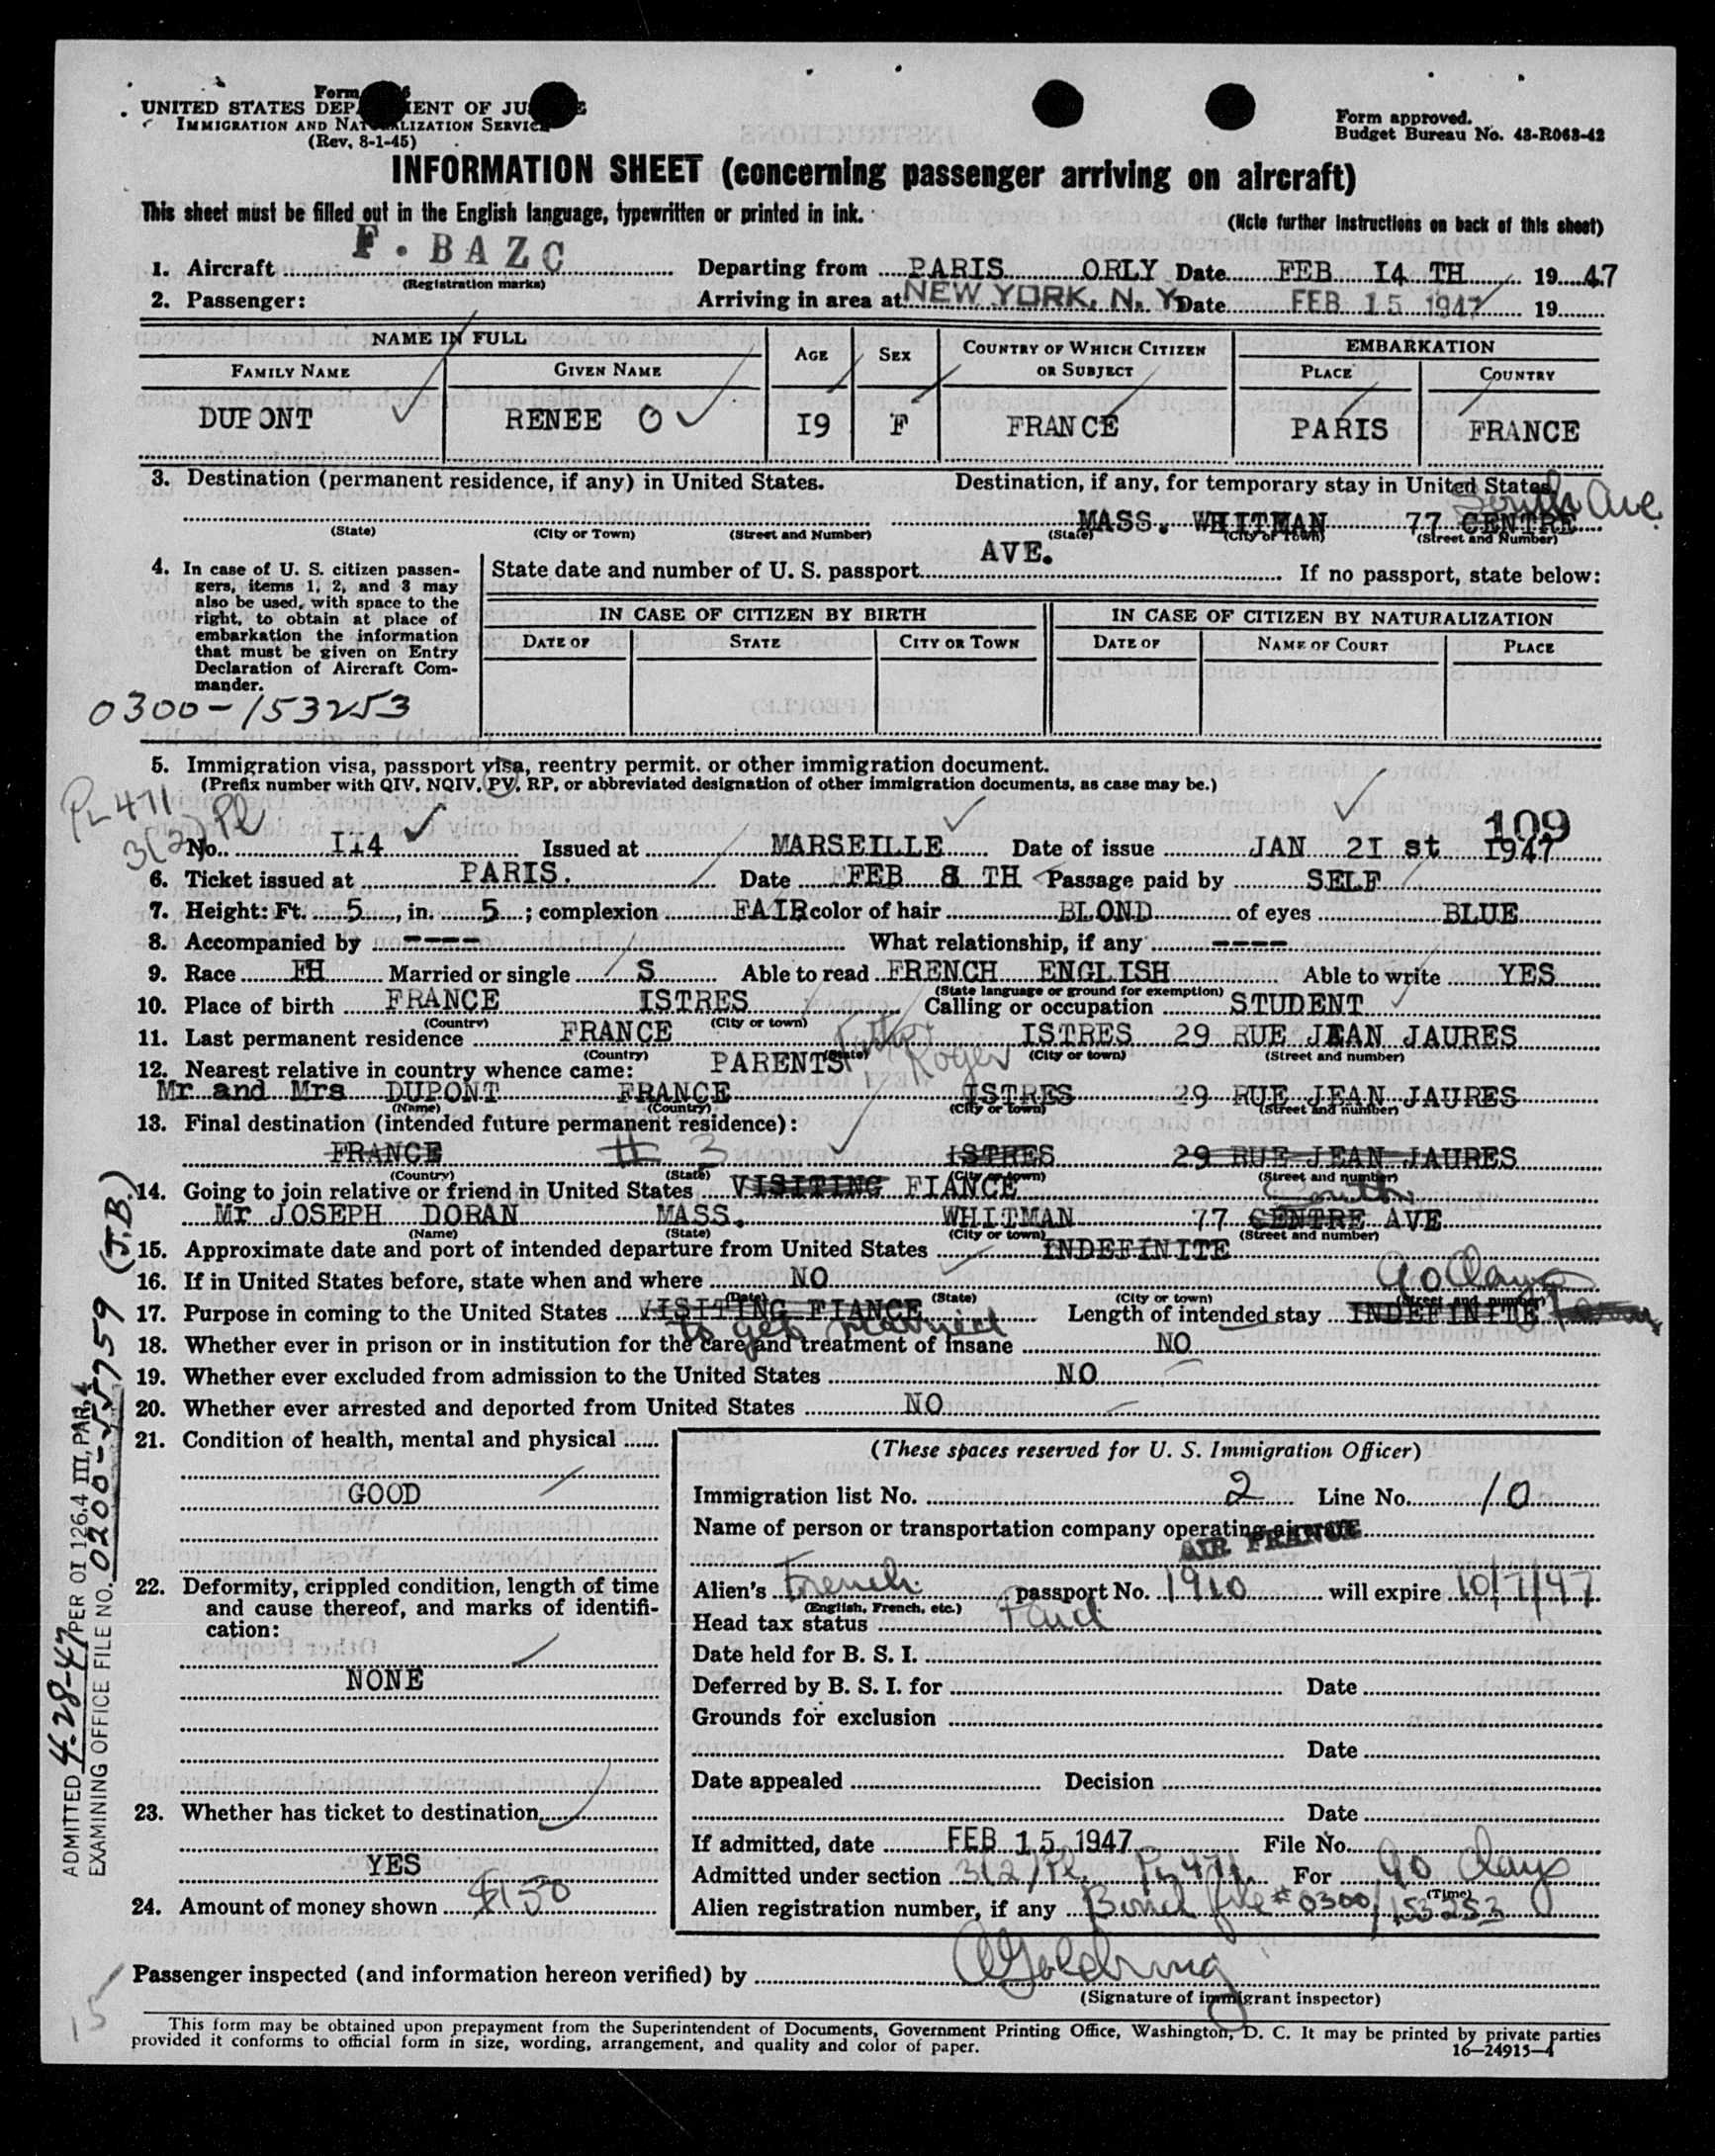 Form
UNITED STATES DEP MENT OF JUS E
IMMIGRATION AND NAT ALIZATION SERVICE
(Rev. 8-1-45)
Form approved.
Budget Bureau No. 43-R063-42
INFORMATION SHEET (concerning passenger arriving on aircraft)
This sheet must be filled out in the English language, typewritten or printed in ink.
(Note further instructions on back of this sheet)
1. Aircraft F. BAZC Departing from PARIS ORLY Date FEB I4 TH 1947
(Registration marks)
2. Passenger: Arriving in area at NEW YORK, N. Y. Date FEB 15 1947 19
NAME IN FULL AGE SEX COUNTRY OF WHICH CITIZEN OR SUBJECT EMBARKATION
FAMILY NAME GIVEN NAME PLACE COUNTRY
DUPONT RENEE O I9 F FRANCE PARIS FRANCE
3. Destination (permanent residence, if any) in United States. Destination, if any, for temporary stay in United States.
South Ave.
MASS. WHITMAN 77 CENTRE
(State) (City or Town) (Street and Number) (State) (City or Town) (Street and Number)
AVE.
4. In case of U. S. citizen passengers, items 1, 2, and 3 may also be used, with space to the right, to obtain at place of embarkation the information that must be given on Entry Declaration of Aircraft Commander.
State date and number of U. S. passport If no passport, state below:
IN CASE OF CITIZEN BY BIRTH IN CASE OF CITIZEN BY NATURALIZATION
DATE OF STATE CITY OR TOWN DATE OF NAME OF COURT PLACE
0300-153253
5. Immigration visa, passport visa, reentry permit, or other immigration document.
(Prefix number with QIV, NQIV, PV, RP, or abbreviated designation of other immigration documents, as case may be.)
PL 471
3(2) Pl
109
No. II4 Issued at MARSEILLE Date of issue JAN 2I st 1947
6. Ticket issued at PARIS. Date FEB 8 TH Passage paid by SELF
7. Height: Ft. 5, in. 5; complexion FAIR color of hair BLOND of eyes BLUE
8. Accompanied by ---- What relationship, if any ----
9. Race FH Married or single S Able to read FRENCH ENGLISH Able to write YES
(State language or ground for exemption)
10. Place of birth FRANCE ISTRES Calling or occupation STUDENT
(Country) (City or town)
11. Last permanent residence FRANCE ISTRES 29 RUE JEAN JAURES
(Country) (State) (City or town) (Street and number)
12. Nearest relative in country whence came: PARENTS Father Roger
Mr and Mrs DUPONT FRANCE ISTRES 29 RUE JEAN JAURES
(Name) (Country) (City or town) (Street and number)
13. Final destination (intended future permanent residence):
FRANCE # 3 ISTRES 29 RUE JEAN JAURES
(Country) (State) (City or town) (Street and number)
14. Going to join relative or friend in United States VISITING FIANCE
South
Mr JOSEPH DORAN MASS. WHITMAN 77 CENTRE AVE
(Name) (State) (City or town) (Street and number)
15. Approximate date and port of intended departure from United States INDEFINITE
16. If in United States before, state when and where NO 90 Days
(Date) (State) (City or town) (Street and number)
17. Purpose in coming to the United States VISITING FIANCE Length of intended stay INDEFINITE
to get married
18. Whether ever in prison or in institution for the care and treatment of insane NO
19. Whether ever excluded from admission to the United States NO
20. Whether ever arrested and deported from United States NO
21. Condition of health, mental and physical
GOOD
22. Deformity, crippled condition, length of time and cause thereof, and marks of identification:
NONE
23. Whether has ticket to destination
YES
24. Amount of money shown $150
(These spaces reserved for U. S. Immigration Officer)
Immigration list No. 2 Line No. 10
Name of person or transportation company operating aircraft
AIR FRANCE
Alien's French passport No. 1910 will expire 10/7/47
(English, French, etc.)
Head tax status Paid
Date held for B. S. I.
Deferred by B. S. I. for Date
Grounds for exclusion
Date
Date appealed Decision
Date
If admitted, date FEB 15 1947 File No.
Admitted under section 3(2) Pl. PL 471. For 90 days
(Time)
Alien registration number, if any Bond file # 0300/153253
Passenger inspected (and information hereon verified) by Goldring
(Signature of immigrant inspector)
15
This form may be obtained upon prepayment from the Superintendent of Documents, Government Printing Office, Washington, D. C. It may be printed by private parties
provided it conforms to official form in size, wording, arrangement, and quality and color of paper.
16—24915-4
ADMITTED 4-28-47 PER OI 126.4 III, PAR. 4
EXAMINING OFFICE FILE NO. 0200-55759 (J.B.)